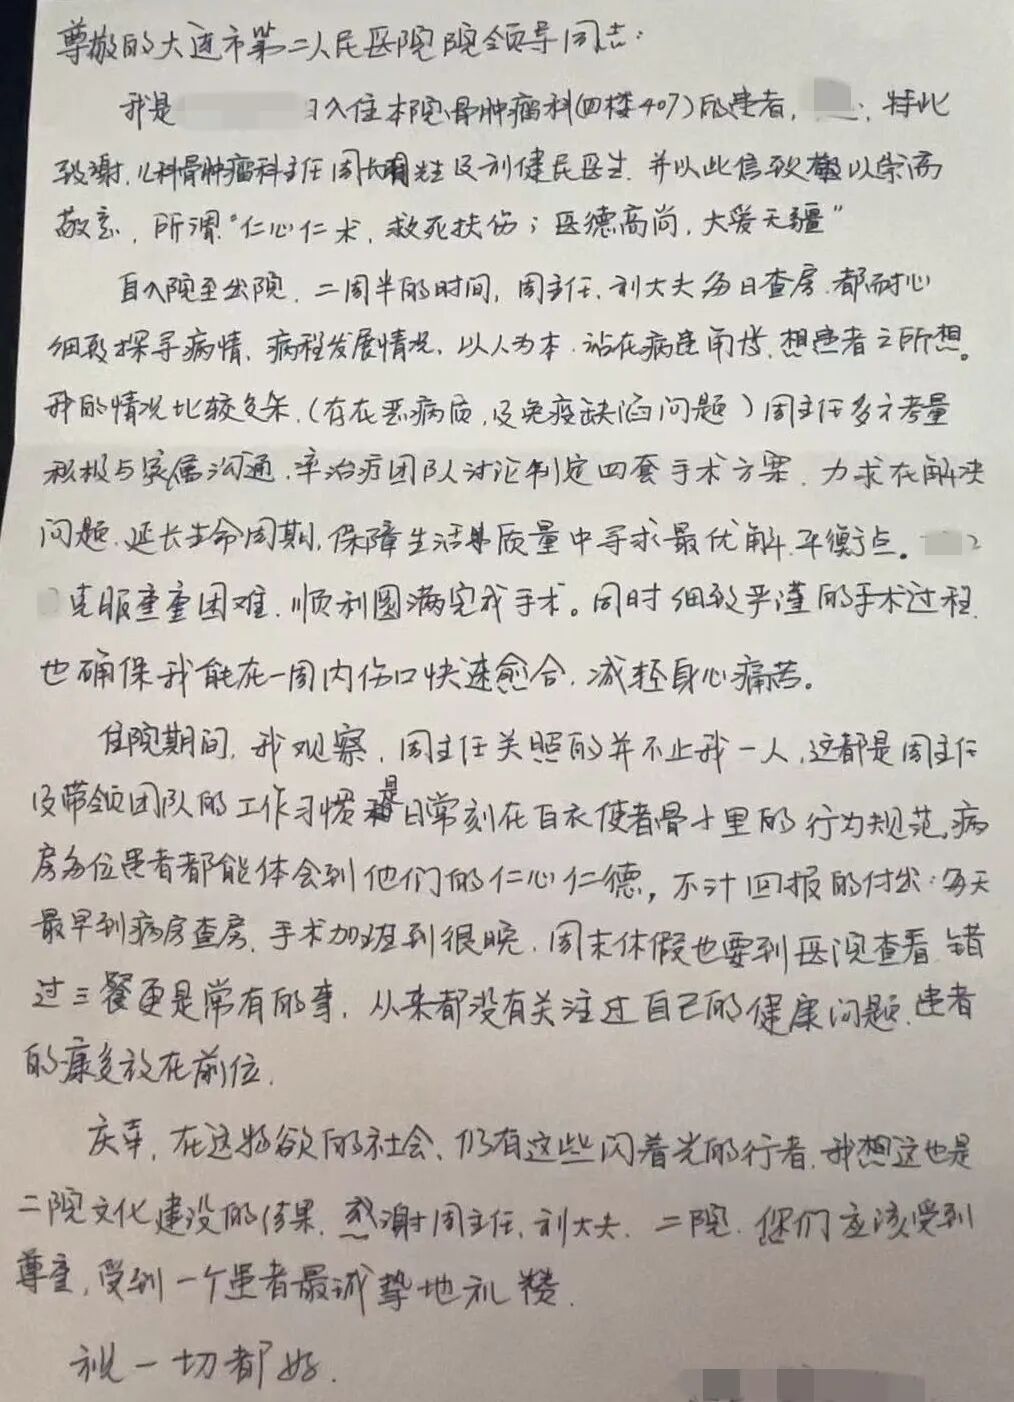 尊敬的大连市第二人民医院院领导同志:
我是 日入住本院骨肿瘤科(四楼407)的患者, 特此
致谢, 儿科骨肿瘤科主任周 先生及刘健民医生. 并以此信致 以崇高
敬意, 所谓"仁心仁术, 救死扶伤; 医德高尚, 大爱无疆"
自入院至出院, 二周半的时间, 周主任, 刘大夫每日查房, 都耐心
细致探寻病情, 病程发展情况, 以人为本, 站在病患角度, 想患者之所想。
我的情况比较复杂, (存在恶病质, 及免疫缺陷问题) 周主任多方考量
积极与家属沟通, 率治疗团队讨论制定四套手术方案, 力求在解决
问题, 延长生命周期, 保障生活质量中寻求最优解, 平衡点。
克服重重困难, 顺利圆满完成手术。同时细致严谨的手术过程,
也确保我能在一周内伤口快速愈合, 减轻身心痛苦。
住院期间, 我观察, 周主任关照的并不止我一人, 这都是周主任
及带领团队的工作习惯 是日常刻在白衣使者骨子里的行为规范, 病
房每位患者都能体会到他们的仁心仁德, 不计回报的付出: 每天
最早到病房查房, 手术加班到很晚, 周末休假也要到医院查看, 错
过三餐更是常有的事, 从来都没有关注过自己的健康问题, 患者
的康复放在前位.
庆幸, 在这物欲的社会, 仍有这些闪着光的行者, 我想这也是
二院文化建设的结果, 感谢周主任, 刘大夫, 二院, 你们应该受到
尊重, 受到一个患者最诚挚地礼赞.
祝一切都好.